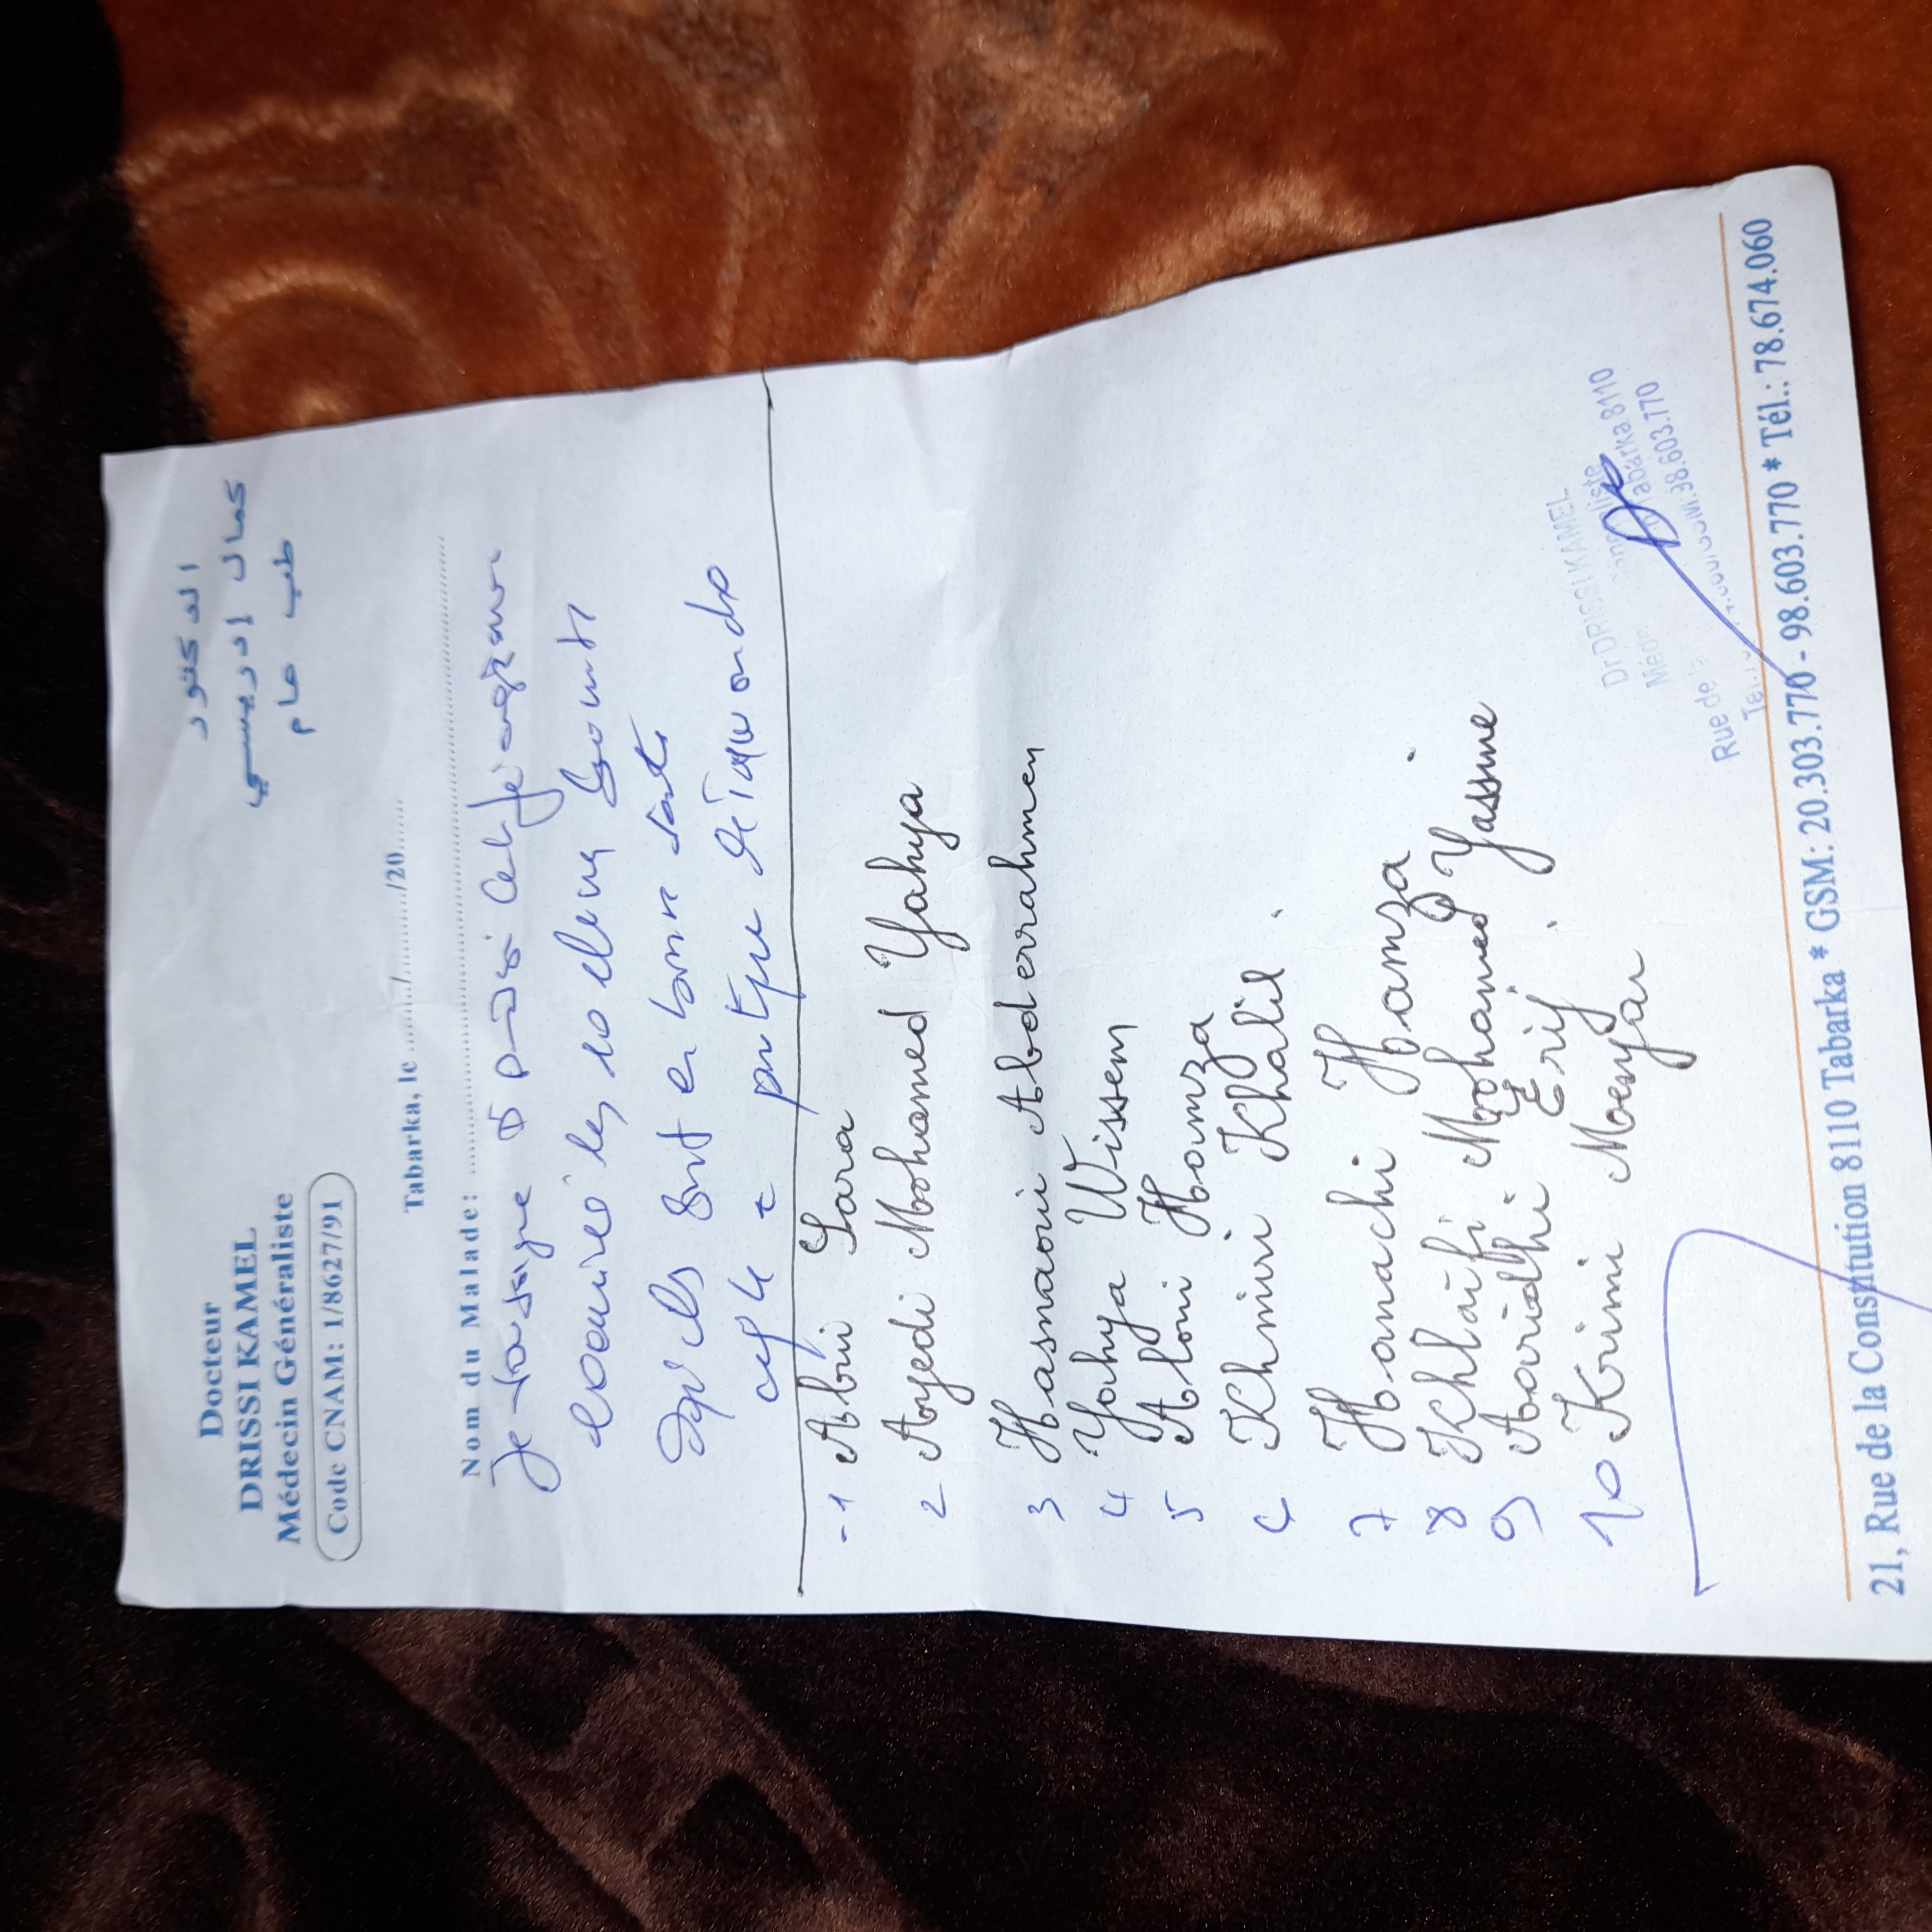 Docteur
DRISSI KAMEL
Médecin Généraliste
Code CNAM: 1/8627/91
الدكتور
كمال إدريسي
طب عام
Tabarka, le ......../......../20......
Nom du Malade:
Je soussigné Dr
examiné les 10
qu'ils sont en bonne santé
pratique
-1 Abui Sara
2 Ayedi Mohamed Yahya
3 Hasnaoui Abderrahmen
4 Yahya Wissem
5 Aloui Hamza
6 Khmiri Khalil
7 Hamachi Hamza
8 Khlaifi Mohamed Yassine
9 Aaridhi Erij
10 Krimi Maeyar
Dr DRISSI KAMEL
Tabarka 8110
Rue de
98.603.770
21, Rue de la Constitution 8110 Tabarka * GSM: 20.303.770 - 98.603.770 * Tél.: 78.674.060